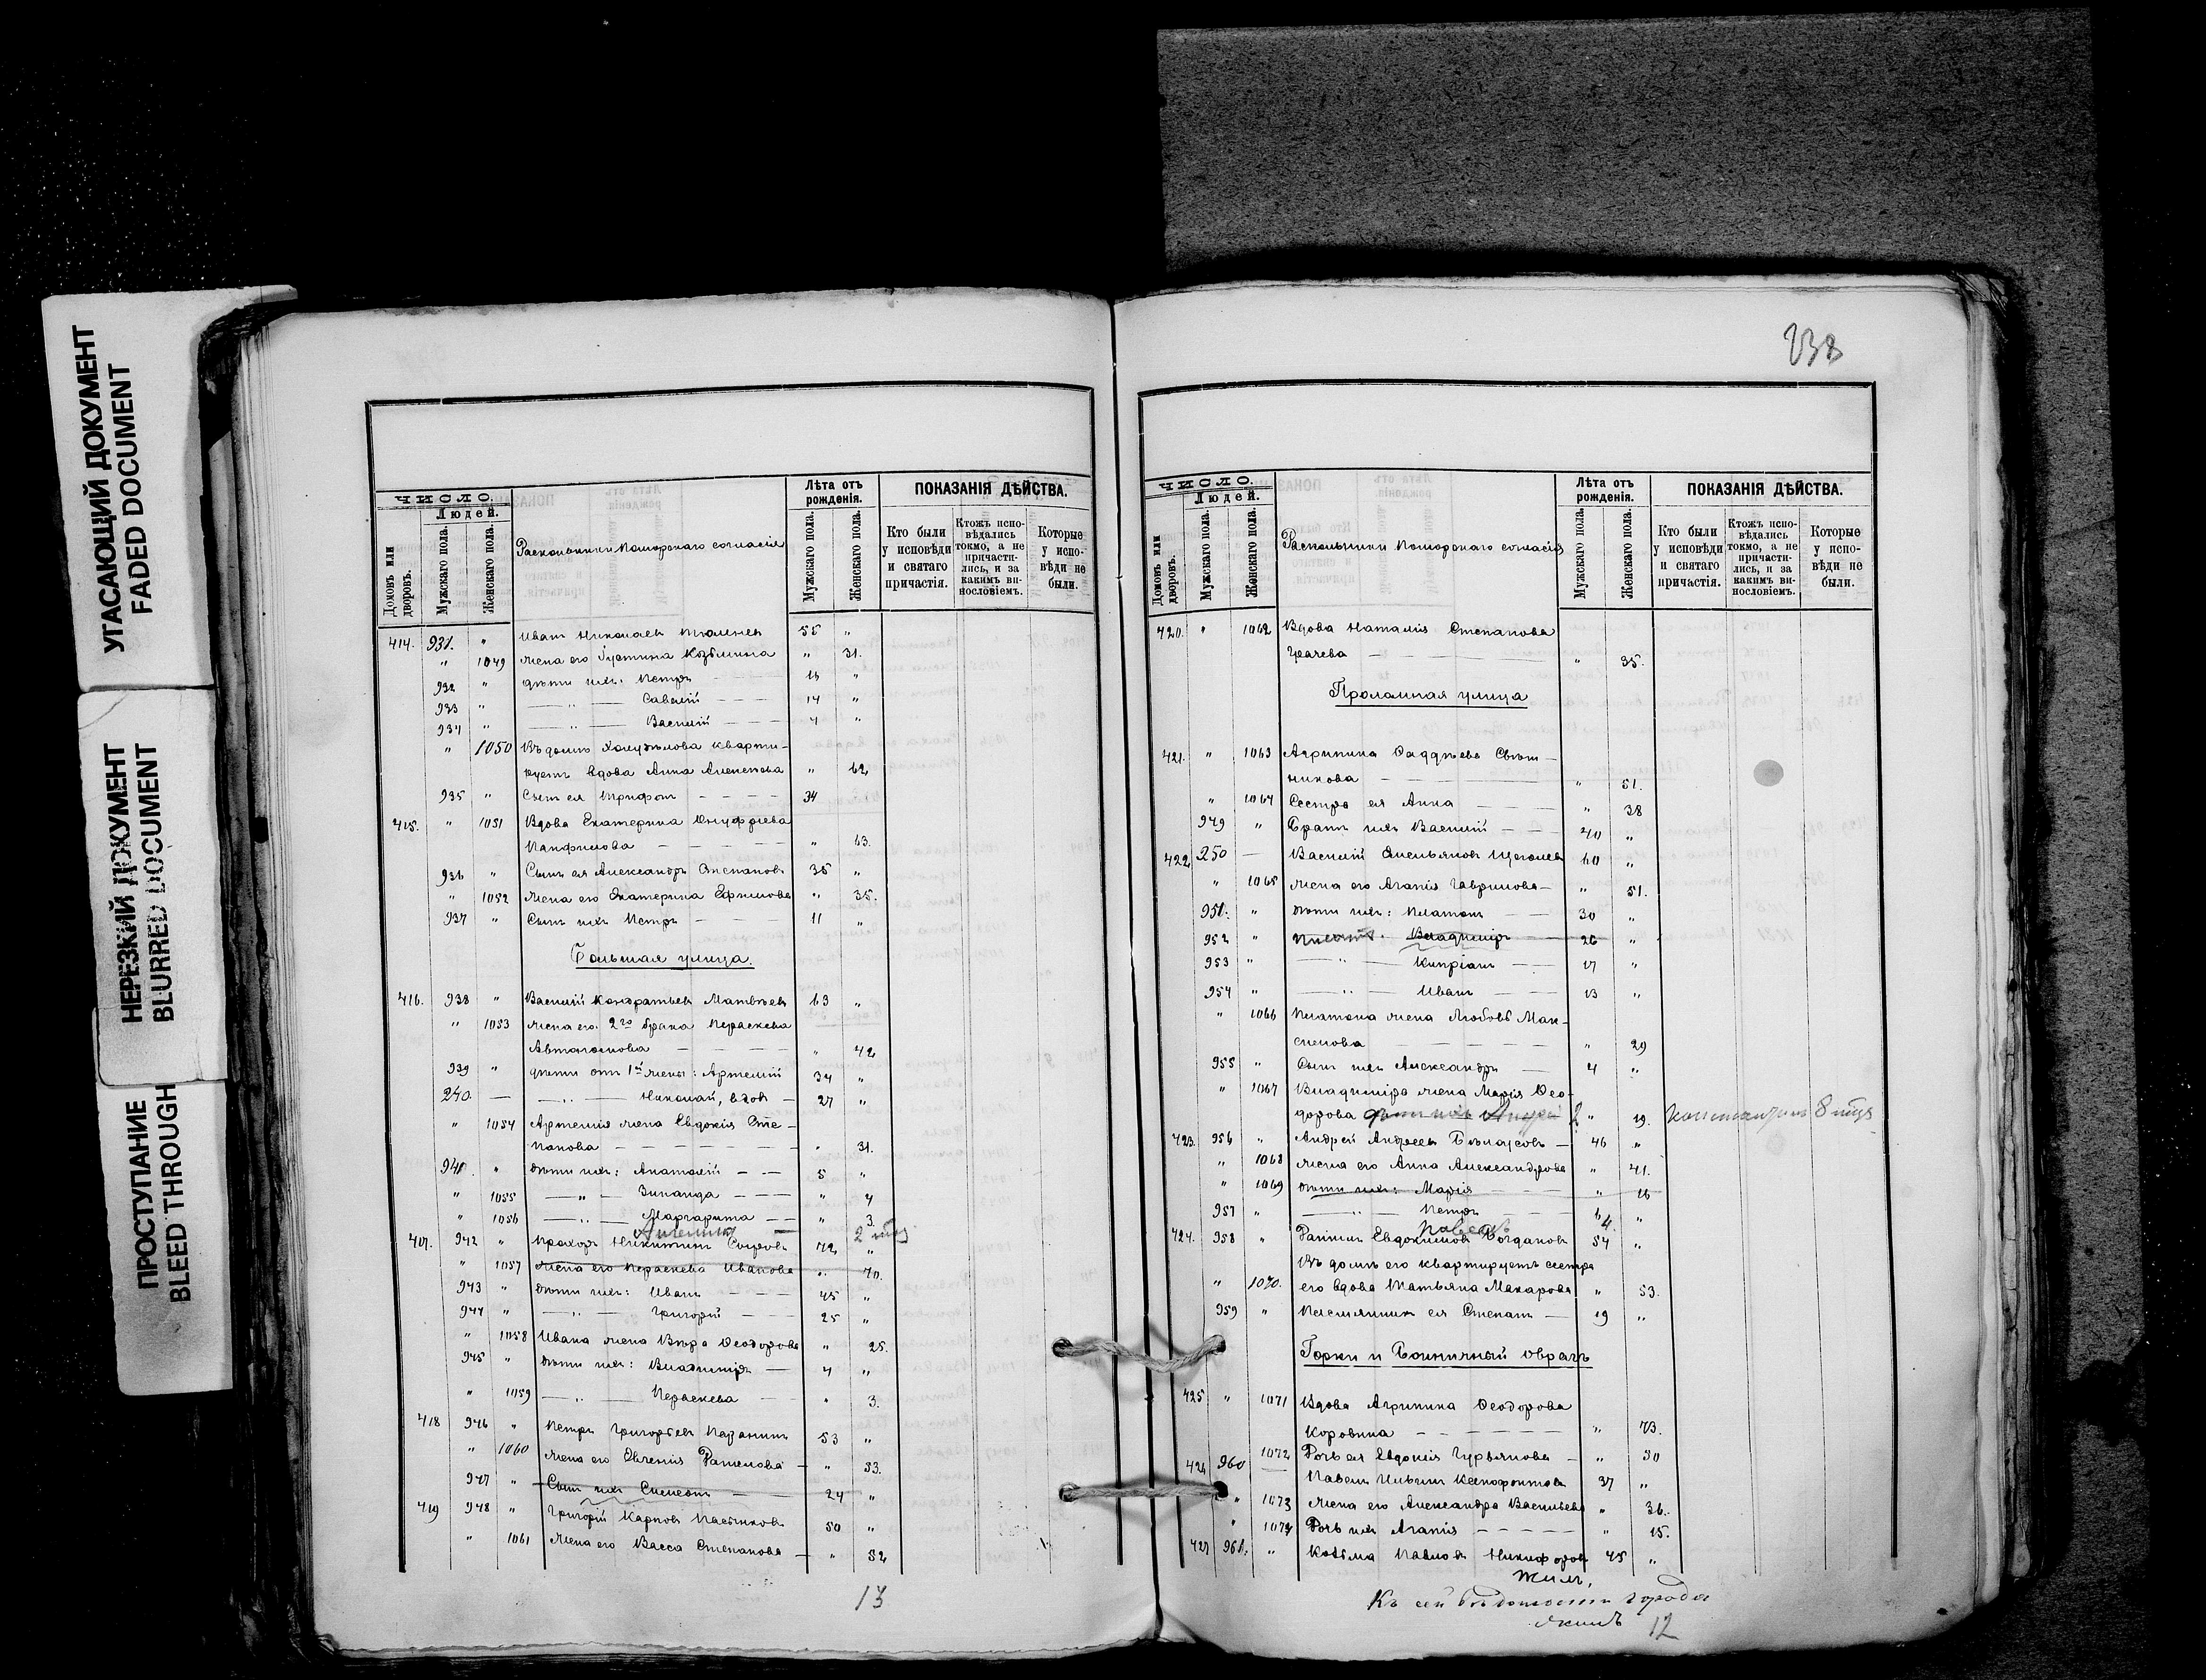 УГАСАЮЩИЙ ДОКУМЕНТ
FADED DOCUMENT
НЕРЕЗКИЙ ДОКУМЕНТ
BLURRED DOCUMENT
ПРОСТУПАНИЕ
BLEED THROUGH
ЧИСЛО.
Людей.
Домовъ или дворовъ.
Мужскаго пола.
Женскаго пола.
Раскольники Поморскаго согласія
Лѣта отъ рожденія.
Мужскаго пола.
Женскаго пола.
ПОКАЗАНІЯ ДѢЙСТВА.
Кто были у исповѣди и святаго причастія.
Ктожъ исповѣдались токмо, а не причастились, и за какимъ винословіемъ.
Которые у исповѣди не были.
414. 931. " Иванъ Николаевъ 55 "
" 1049 Жена его Іустина Козьмина " 31.
932 " Дѣти ихъ: Петръ "
933 " —"— Савелій 14 "
934 " —"— Василій 4 "
" 1050 Въ домѣ кварти-
руетъ вдова Анна Алексѣева " 62
935 " Сынъ ея Трифонъ 34
415. " 1051 Вдова Екатерина Онуфріева
Панфилова " 63.
936 " Сынъ ея Александръ Степановъ 35 "
" 1052 Жена его Екатерина Ефимова " 35.
937 " Сынъ ихъ Петръ 11 "
Большая улица.
416. 938 " Василій Кондратьевъ Матвѣевъ 63 "
" 1053 Жена его 2го брака Параскева
Автономова " 42
939 " Дѣти отъ 1й жены: Артемій 34 "
240 — —"— Николай, вдов 27 "
" 1054 Артемія жена Евдокія Сте-
панова " 31.
941. " Дѣти ихъ: Анатолій 5 "
" 1055 —"— Зинаида " 4
" 1056 —"— Маргарита " 3.
417. 942 " Прохоръ Никитинъ 72 "
" 1057 Жена его Параскева Иванова " 70.
943 " Дѣти ихъ: Иванъ 45 "
944 " —"— Григорій 25 "
" 1058 Ивана жена Вѣра Ѳеодорова " 25.
945 " Дѣти ихъ: Владиміръ 4 "
" 1059 —"— Параскева " 3.
418 946 " Петръ Григорьевъ Казанинъ 53 "
" 1060 Жена его Евгенія " 53.
947 " Сынъ ихъ Симеонъ 24 "
419 948 " Григорій Карповъ 50 "
" 1061 Жена его Васса Степанова " 52
13
238
ЧИСЛО.
Людей.
Домовъ или дворовъ.
Мужскаго пола.
Женскаго пола.
Раскольники Поморскаго согласія
Лѣта отъ рожденія.
Мужскаго пола.
Женскаго пола.
ПОКАЗАНІЯ ДѢЙСТВА.
Кто были у исповѣди и святаго причастія.
Ктожъ исповѣдались токмо, а не причастились, и за какимъ винословіемъ.
Которые у исповѣди не были.
420. " 1062 Вдова Наталія Степанова
Грачева " 35.
Проломная улица
421. " 1063 Агрипина Ѳаддѣева Свѣш-
никова " 51.
" 1064 Сестра ея Анна " 38
949 " Братъ ихъ Василій 40 "
422 250 — Василій Емельяновъ Щеголевъ 60 "
" 1065 Жена его Агапія Гаврилова " 51.
951. " Дѣти ихъ: Платонъ 30 "
952 " Владиміръ 26 "
953 " —"— Кипріанъ 17 "
954 " —"— Иванъ 13 "
" 1066 Платона жена Любовь Мак-
симова " 29
955 " Сынъ ихъ Александръ 4 "
" 1067 Владиміра жена Марія Ѳео-
дорова дѣти ихъ Андрей 2 " 19. Константинъ 8 мѣс
423. 956 " Андрей Андреевъ Бѣлоусовъ 46 "
" 1068 Жена его Анна Александрова " 41.
" 1069 Дѣти ихъ: Марія " 16
957 " —"— Петръ "
Павелъ
424. 958 " Евдокимовъ Богдановъ 54 "
Въ домѣ его квартируетъ сестра
" 1070. его вдова Татьяна Макарова " 53.
959 " Племянникъ ея Степанъ 19 "
Горки и Больничный оврагъ
425 " 1071 Вдова Агрипина Ѳеодорова
Коровина " 73.
1072 Дочь ея Евдокія Гурьянова " 50
426 960 — Павелъ Ильинъ Ксенофонтовъ 37 "
" 1073 Жена его Александра Васильева " 36.
" 1074 Дочь ихъ Агапія " 15.
427 961. " Козьма Павловъ Никифоровъ 45 "
Къ сей вѣдомости города
12